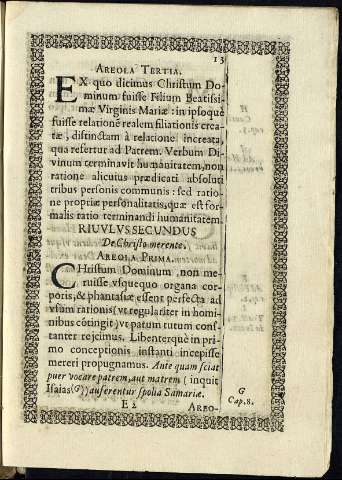 13
AREOLA TERTIA.
EX quo dicimus Christum Do-
minum fuisse Filium Beatissi-
mæ Virginis Mariæ: in ipsoque
fuisse relationẽ realem filiationis crea-
tæ, distinctam à relatione increata,
qua refertur ad Patrem. Verbum Di-
vinum terminavit humanitatem, non
ratione alicuius prædicati absoluti
tribus personis communis: sed ratio-
ne propriæ personalitatis, quæ est for-
malis ratio terminandi humanitatem.
RIVVLVS SECUNDUS
De Christo merente.
AREOLA PRIMA.
CHristum Dominum, non me-
ruisse vsquequo organa cor-
poris, & phantasiæ essent perfecta ad
vsum rationis (vt regulariter in homi-
nibus cõtingit) vt parum tutum cons-
tanter rejcimus. Libenterque in pri-
mo conceptionis instanti incepisse
mereri propugnamus. Ante quam sciat
puer vocare patrem, aut matrem (inquit
Isaias (G)) auferentur spolia Samariæ.
G
Cap. 8.
E 2
AREO-